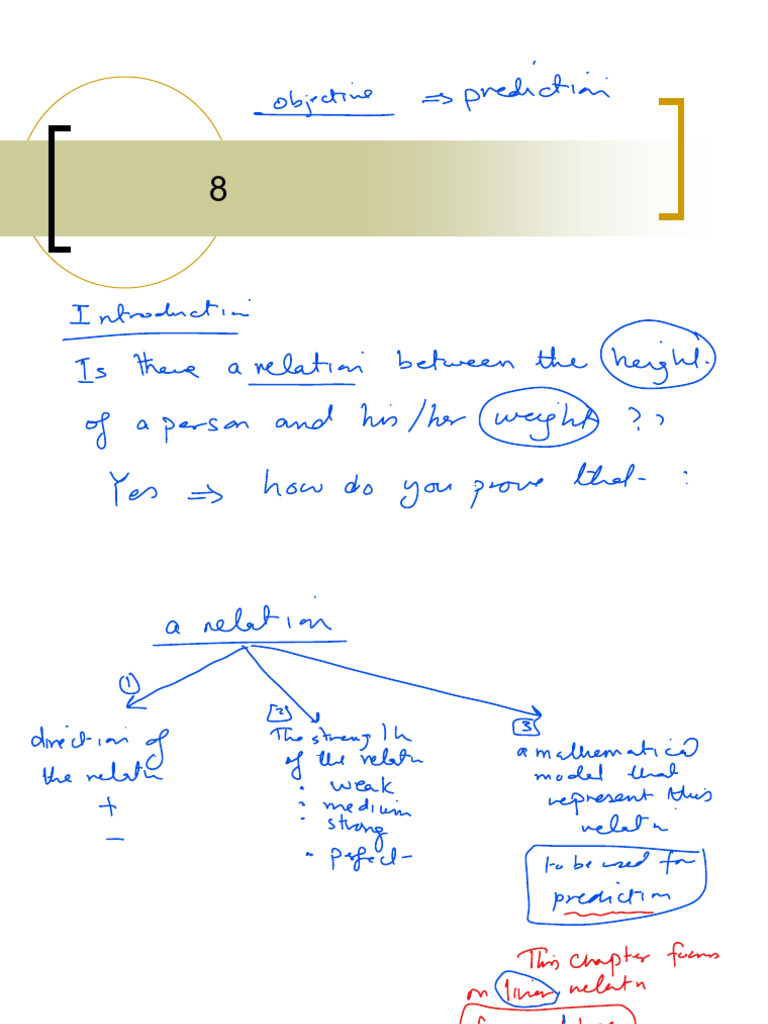 objective ⇒ prediction
8
Introduction
Is there a relation between the height
of a person and his/her weight ??
Yes ⇒ how do you prove that :
a relation
1
direction of
the relatn
+
-
2
The strength
of the relatn
• weak
• medium
• strong
• perfect
3
a mathematical
model that
represent this
relatn
to be used for
prediction
This chapter focus
on linear relatn